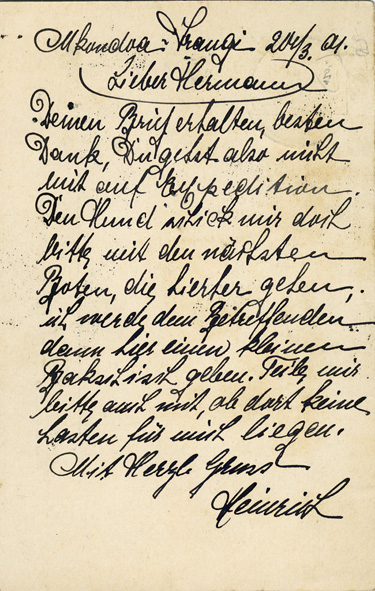 Mkondoa-Irangi 20/3. 01.
Lieber Hermann
Deinen Brief erhalten, besten
Dank, Du gehst also nicht
mit auf Expedition.
Den Hund schick mir doch
bitte mit den nächsten
Boten, die hierher gehen,
ich werde dem Betreffenden
dann hier einen kleinen
Bakschisch geben. Teile mir
bitte auch mit, ob dort keine
Lasten für mich liegen.
Mit Herzl. Gruss
Heinrich